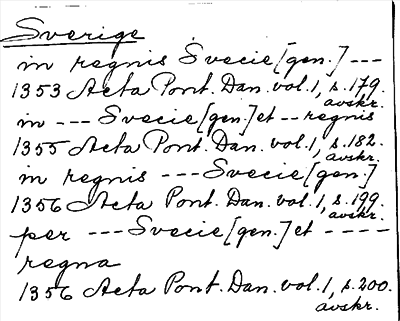 Sverige
in regnis Svecie [gen.] ---
1353 Acta Pont. Dan. vol. 1, s. 179.
avskr.
in --- Svecie [gen.] et -- regnis
1355 Acta Pont. Dan. vol. 1, s. 182.
avskr.
in regnis --- Svecie [gen.]
1356 Acta Pont. Dan. vol. 1, s. 199.
avskr.
per --- Svecie [gen.] et ----
regna
1356 Acta Pont. Dan. vol. 1, s. 200.
avskr.